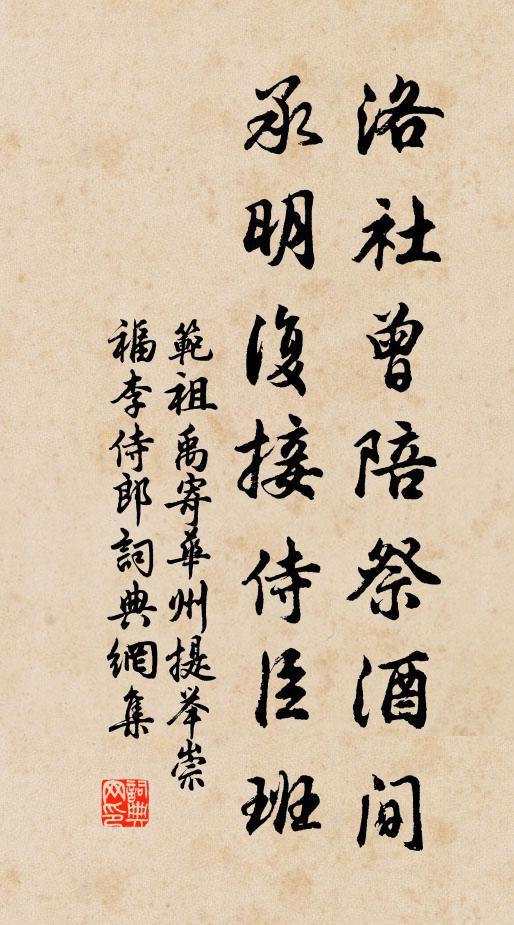 洛社曾陪祭酒間
承明復接侍臣班
範祖禹寄華州提举崇
福李侍郎詞典網集
詞典
网印